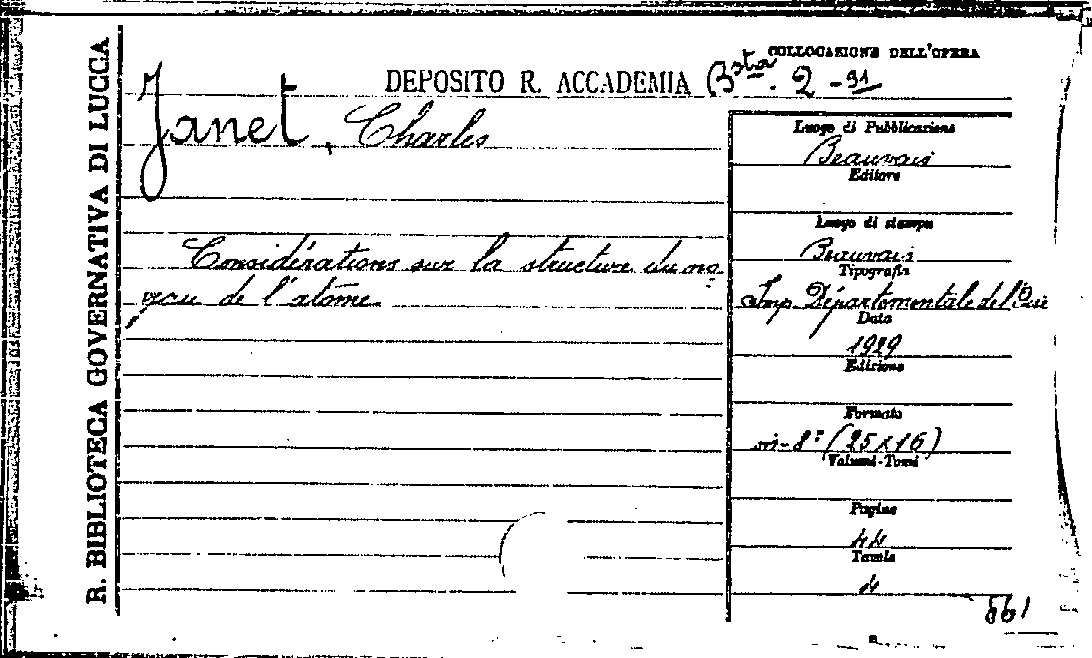 R. BIBLIOTECA GOVERNATIVA DI LUCCA
COLLOCAZIONE DELL'OPERA
DEPOSITO R. ACCADEMIA Bsta. 2 - 91
Janet, Charles
Considérations sur la structure du no-
yau de l'atôme
Luogo di Pubblicazione
Beauvais
Editore
Luogo di stampa
Beauvais
Tipografia
Imp. Départementale de l'Oise
Data
1929
Edizione
Formato
in-8° (25x16)
Volumi-Tomi
Pagine
44
Tavole
4
861